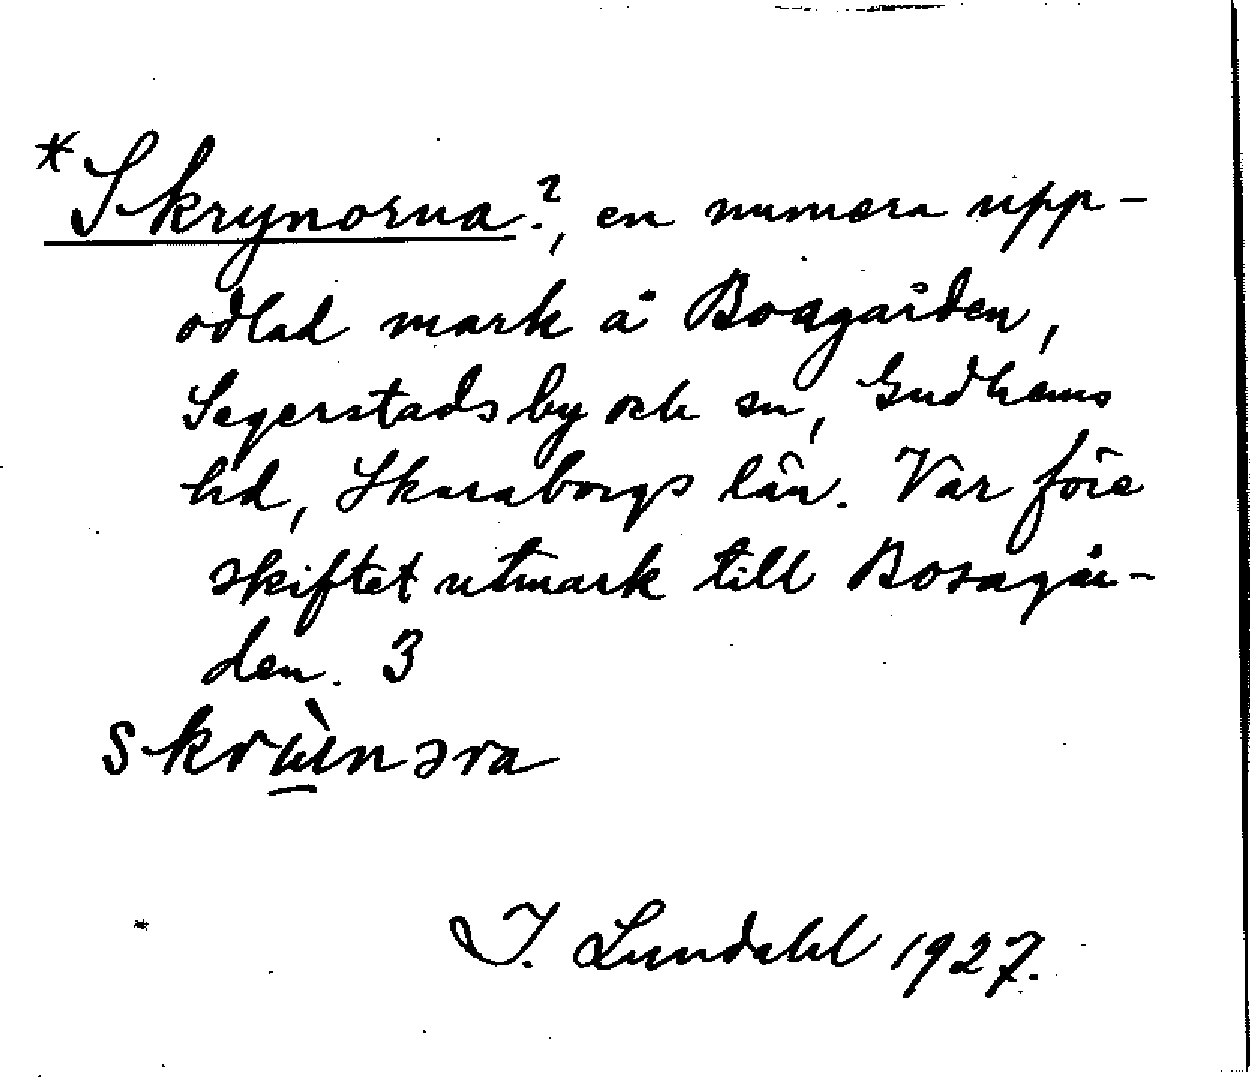 *Skrynorna?, en numera upp-
odlad mark å Boagården,
Segerstads by och sn, Gudhems
hd, Skaraborgs län. Var före
skiftet utmark till Bosagår-
den. 3
skrènəra
I. Lundahl 1927.